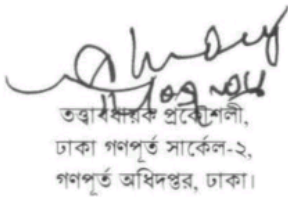 তত্ত্বাবধায়ক প্রকৌশলী,
ঢাকা গণপূর্ত সার্কেল-২,
গণপূর্ত অধিদপ্তর, ঢাকা।